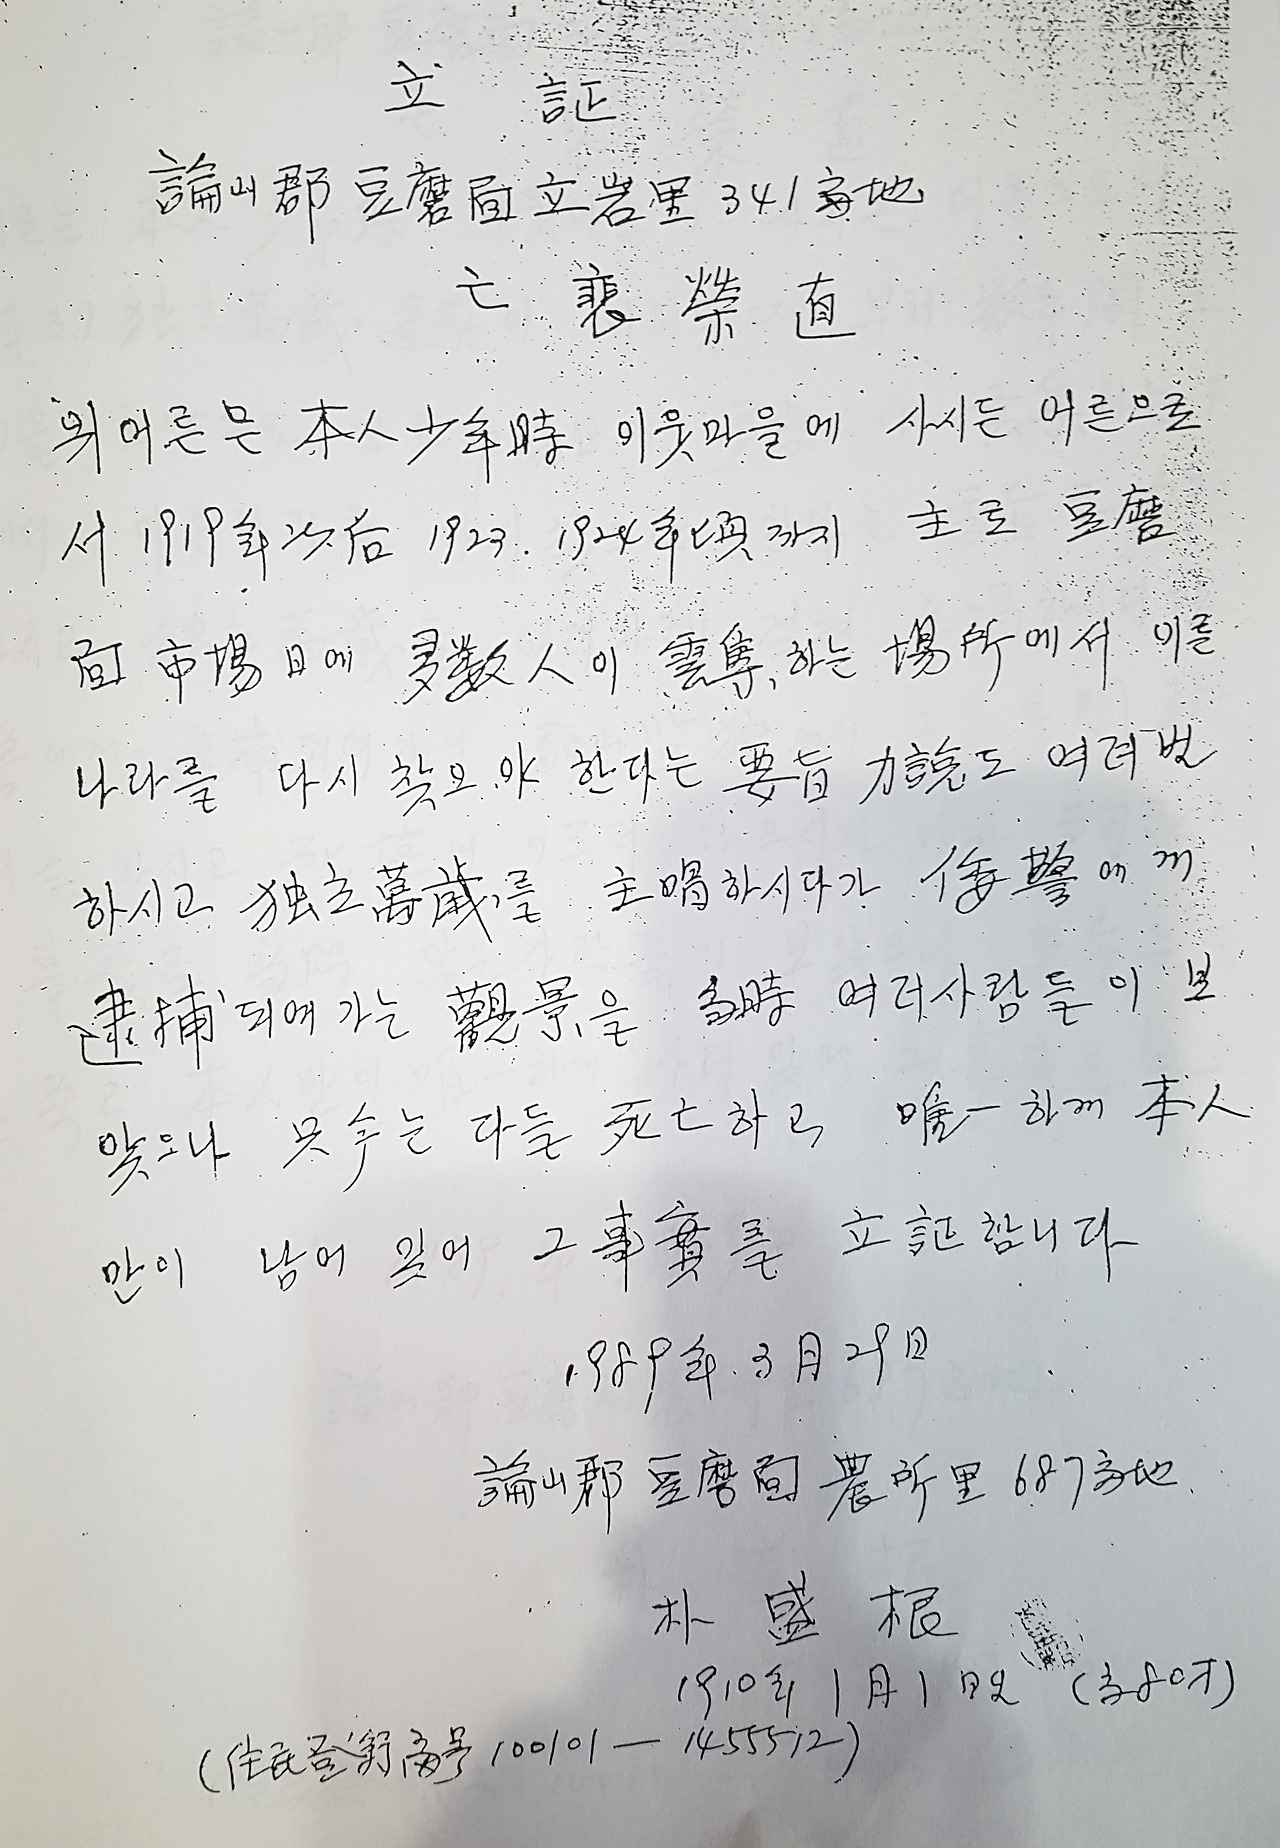 立 証
論山郡 豆磨面 立岩里 341番地
亡 裵 榮 直
위어른은 本人少年時 이웃마을에 사시든 어른으로
서 1919年以后 1923. 1924年頃까지 主로 豆磨
面 市場日에 多數人이 雲集하는 場所에서 이른
나라를 다시 찾으야 한다는 要旨 力說도 여려번
하시고 独立萬歲를 主唱하시다가 倭警에게
逮捕되여가는 觀景을 當時 여러사람들이 보
앗으나 只今는 다들 死亡하고 唯一하게 本人
만이 남어 잇어 그 事實를 立証합니다
1989年 3月 29日
論山郡 豆磨面 農所里 687番地
朴 盛 根
1910年 1月 1日生 (當80才)
(住民登錄番号 100101 — 1455512)